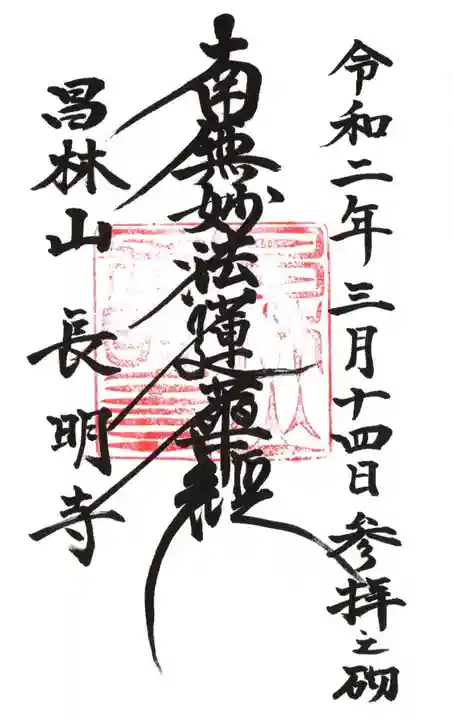 令和二年三月十四日参拝之砌
南無妙法蓮華経
昌林山長明寺